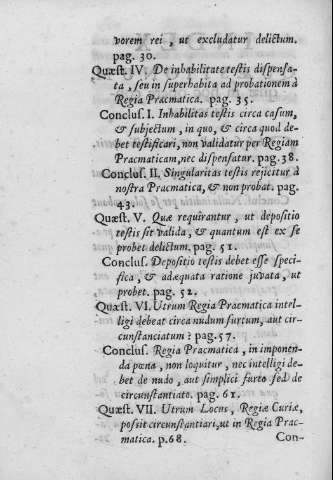 vorem rei , ut excludatur delictum.
pag. 30.
Quæst. IV. De inhabilitate testis dispensa-
ta , seu in superhabita ad probationem à
Regia Pracmatica. pag. 35.
Conclus. I. Inhabilitas testis circa casum,
& subjectum, in quo, & circa quod de-
bet testificari, non validatur per Regiam
Pracmaticam, nec dispensatur. pag. 38.
Conclus. II. Singularitas testis rejicitur à
nostra Pracmatica, & non probat. pag.
43.
Quæst. V. Quæ requirantur , ut depositio
testis sit valida , & quantum est ex se
probet delictum. pag. 51.
Conclus. Depositio testis debet esse speci-
fica , & adæquata ratione juvata , ut
probet. pag. 52.
Quæst. VI. Utrum Regia Praematica intel-
ligi debeat circa nudum furtum, aut cir-
cunstanciatum ? pag. 57.
Conclus. Regia Pracmatica , in imponen-
da pœna , non loquitur , nec intelligi de-
bet de nudo , aut simplici furto sed de
circunstantiato. pag. 61.
Quæst. VII. Utrum Locus , Regiæ Curiæ,
possit circunstantiari, ut in Regia Prac-
matica. p. 68.
Con-